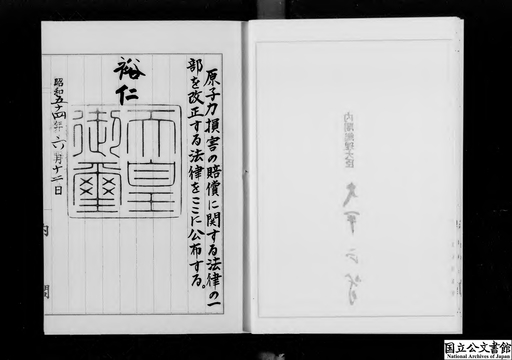 原子力損害の賠償に関する法律の一
部を改正する法律をここに公布する。
裕仁
天皇
御璽
昭和五十四年六月十二日
内閣
国立公文書館
National Archives of Japan